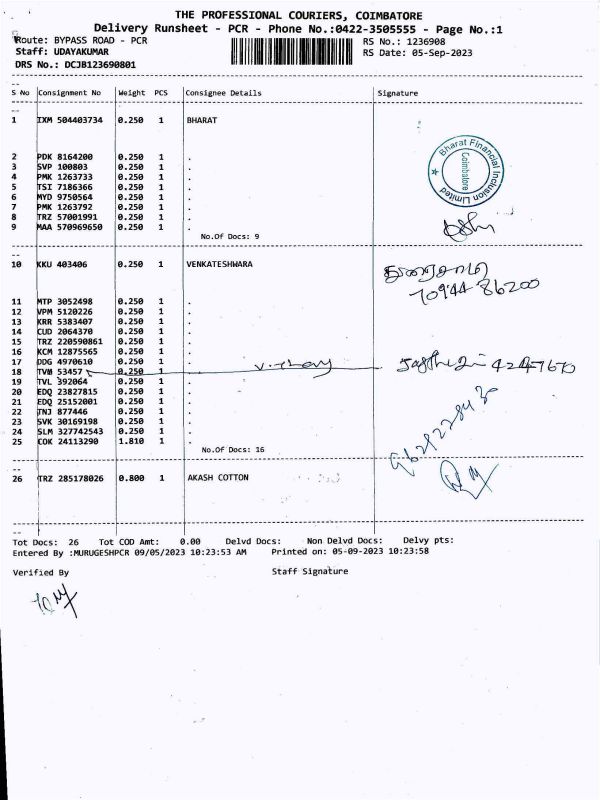 THE PROFESSIONAL COURIERS, COIMBATORE
Delivery Runsheet - PCR - Phone No.:0422-3505555 - Page No.:1
Route: BYPASS ROAD - PCR
RS No.: 1236908
Staff: UDAYAKUMAR
RS Date: 05-Sep-2023
DRS No.: DCJB123690801
S No Consignment No Weight PCS Consignee Details Signature
1 IXM 504403734 0.250 1 BHARAT
Bharat Financial Inclusion Limited
Coimbatore
2 PDK 8164200 0.250 1 .
3 SVP 100803 0.250 1 .
4 PMK 1263733 0.250 1 .
5 TSI 7186366 0.250 1 .
6 MYD 9750564 0.250 1 .
7 PMK 1263792 0.250 1 .
8 TRZ 57001991 0.250 1 .
9 MAA 570969650 0.250 1 .
No.Of Docs: 9
10 KKU 403406 0.250 1 VENKATESHWARA
துரைசாமி
70944 86200
11 MTP 3052498 0.250 1 .
12 VPM 5120226 0.250 1 .
13 KRR 5383407 0.250 1 .
14 CUD 2064370 0.250 1 .
15 TRZ 220590861 0.250 1 .
16 KCM 12875565 0.250 1 .
17 DDG 4970610 0.250 1 .
18 TVM 53457 0.250 1 .
19 TVL 392064 0.250 1 .
20 EDQ 23827815 0.250 1 .
21 EDQ 25152001 0.250 1 .
22 TNJ 877446 0.250 1 .
23 SVK 30169198 0.250 1 .
24 SLM 327742543 0.250 1 .
25 COK 24113290 1.810 1 .
No.Of Docs: 16
26 TRZ 285178026 0.800 1 AKASH COTTON
Tot Docs: 26 Tot COD Amt: 0.00 Delvd Docs: Non Delvd Docs: Delvy pts:
Entered By :MURUGESHPCR 09/05/2023 10:23:53 AM Printed on: 05-09-2023 10:23:58
Verified By Staff Signature